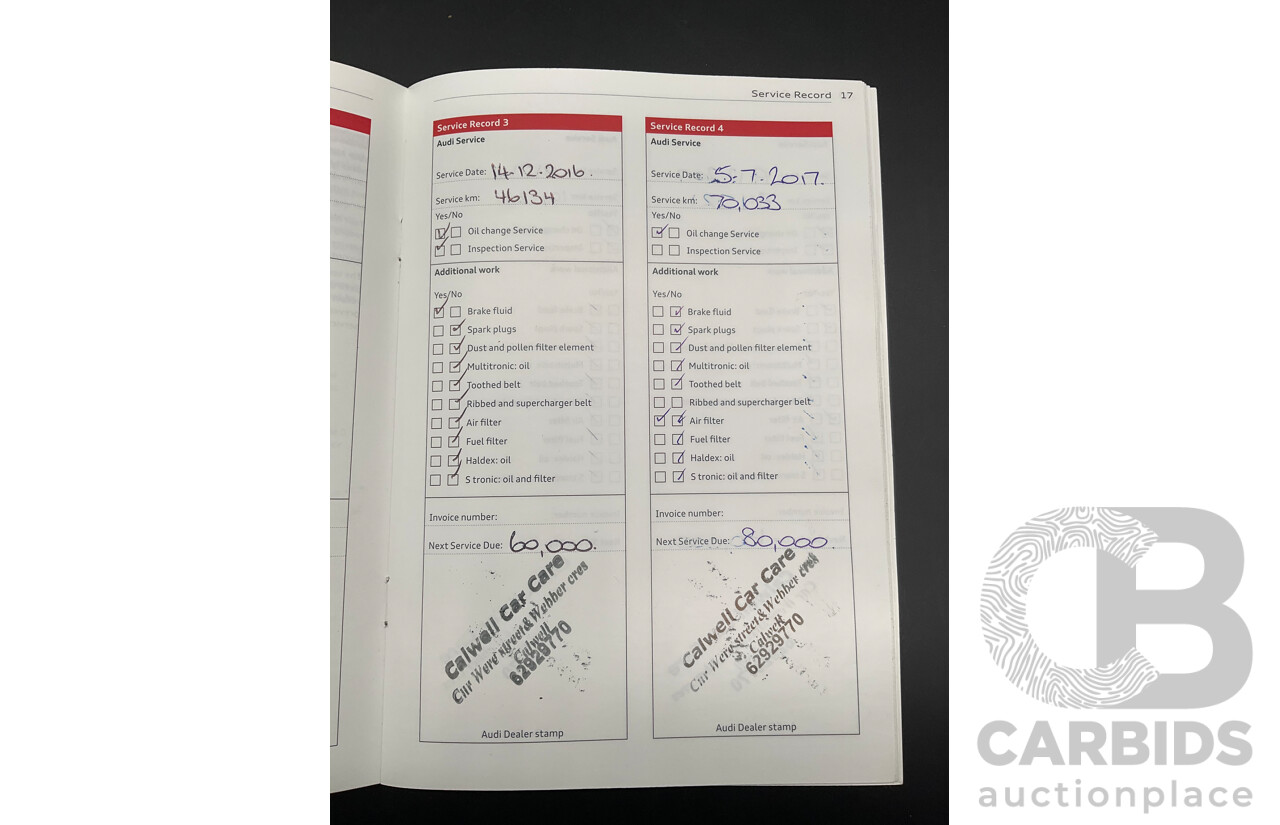 Service Record 17
Service Record 3
Audi Service
Service Date: 14-12-2016.
Service km: 46134
Yes/No
Oil change Service
Inspection Service
Additional work
Yes/No
Brake fluid
Spark plugs
Dust and pollen filter element
Multitronic: oil
Toothed belt
Ribbed and supercharger belt
Air filter
Fuel filter
Haldex: oil
S tronic: oil and filter
Invoice number:
Next Service Due: 60,000.
Calwell Car Care
Cnr Were street & Webber cres
Calwell
62929770
Audi Dealer stamp
Service Record 4
Audi Service
Service Date: 5.7.2017.
Service km: 70,033
Yes/No
Oil change Service
Inspection Service
Additional work
Yes/No
Brake fluid
Spark plugs
Dust and pollen filter element
Multitronic: oil
Toothed belt
Ribbed and supercharger belt
Air filter
Fuel filter
Haldex: oil
S tronic: oil and filter
Invoice number:
Next Service Due: 80,000.
Calwell Car Care
Cnr Were street & Webber cres
Calwell
62929770
Audi Dealer stamp
CB
CARBIDS
auctionplace